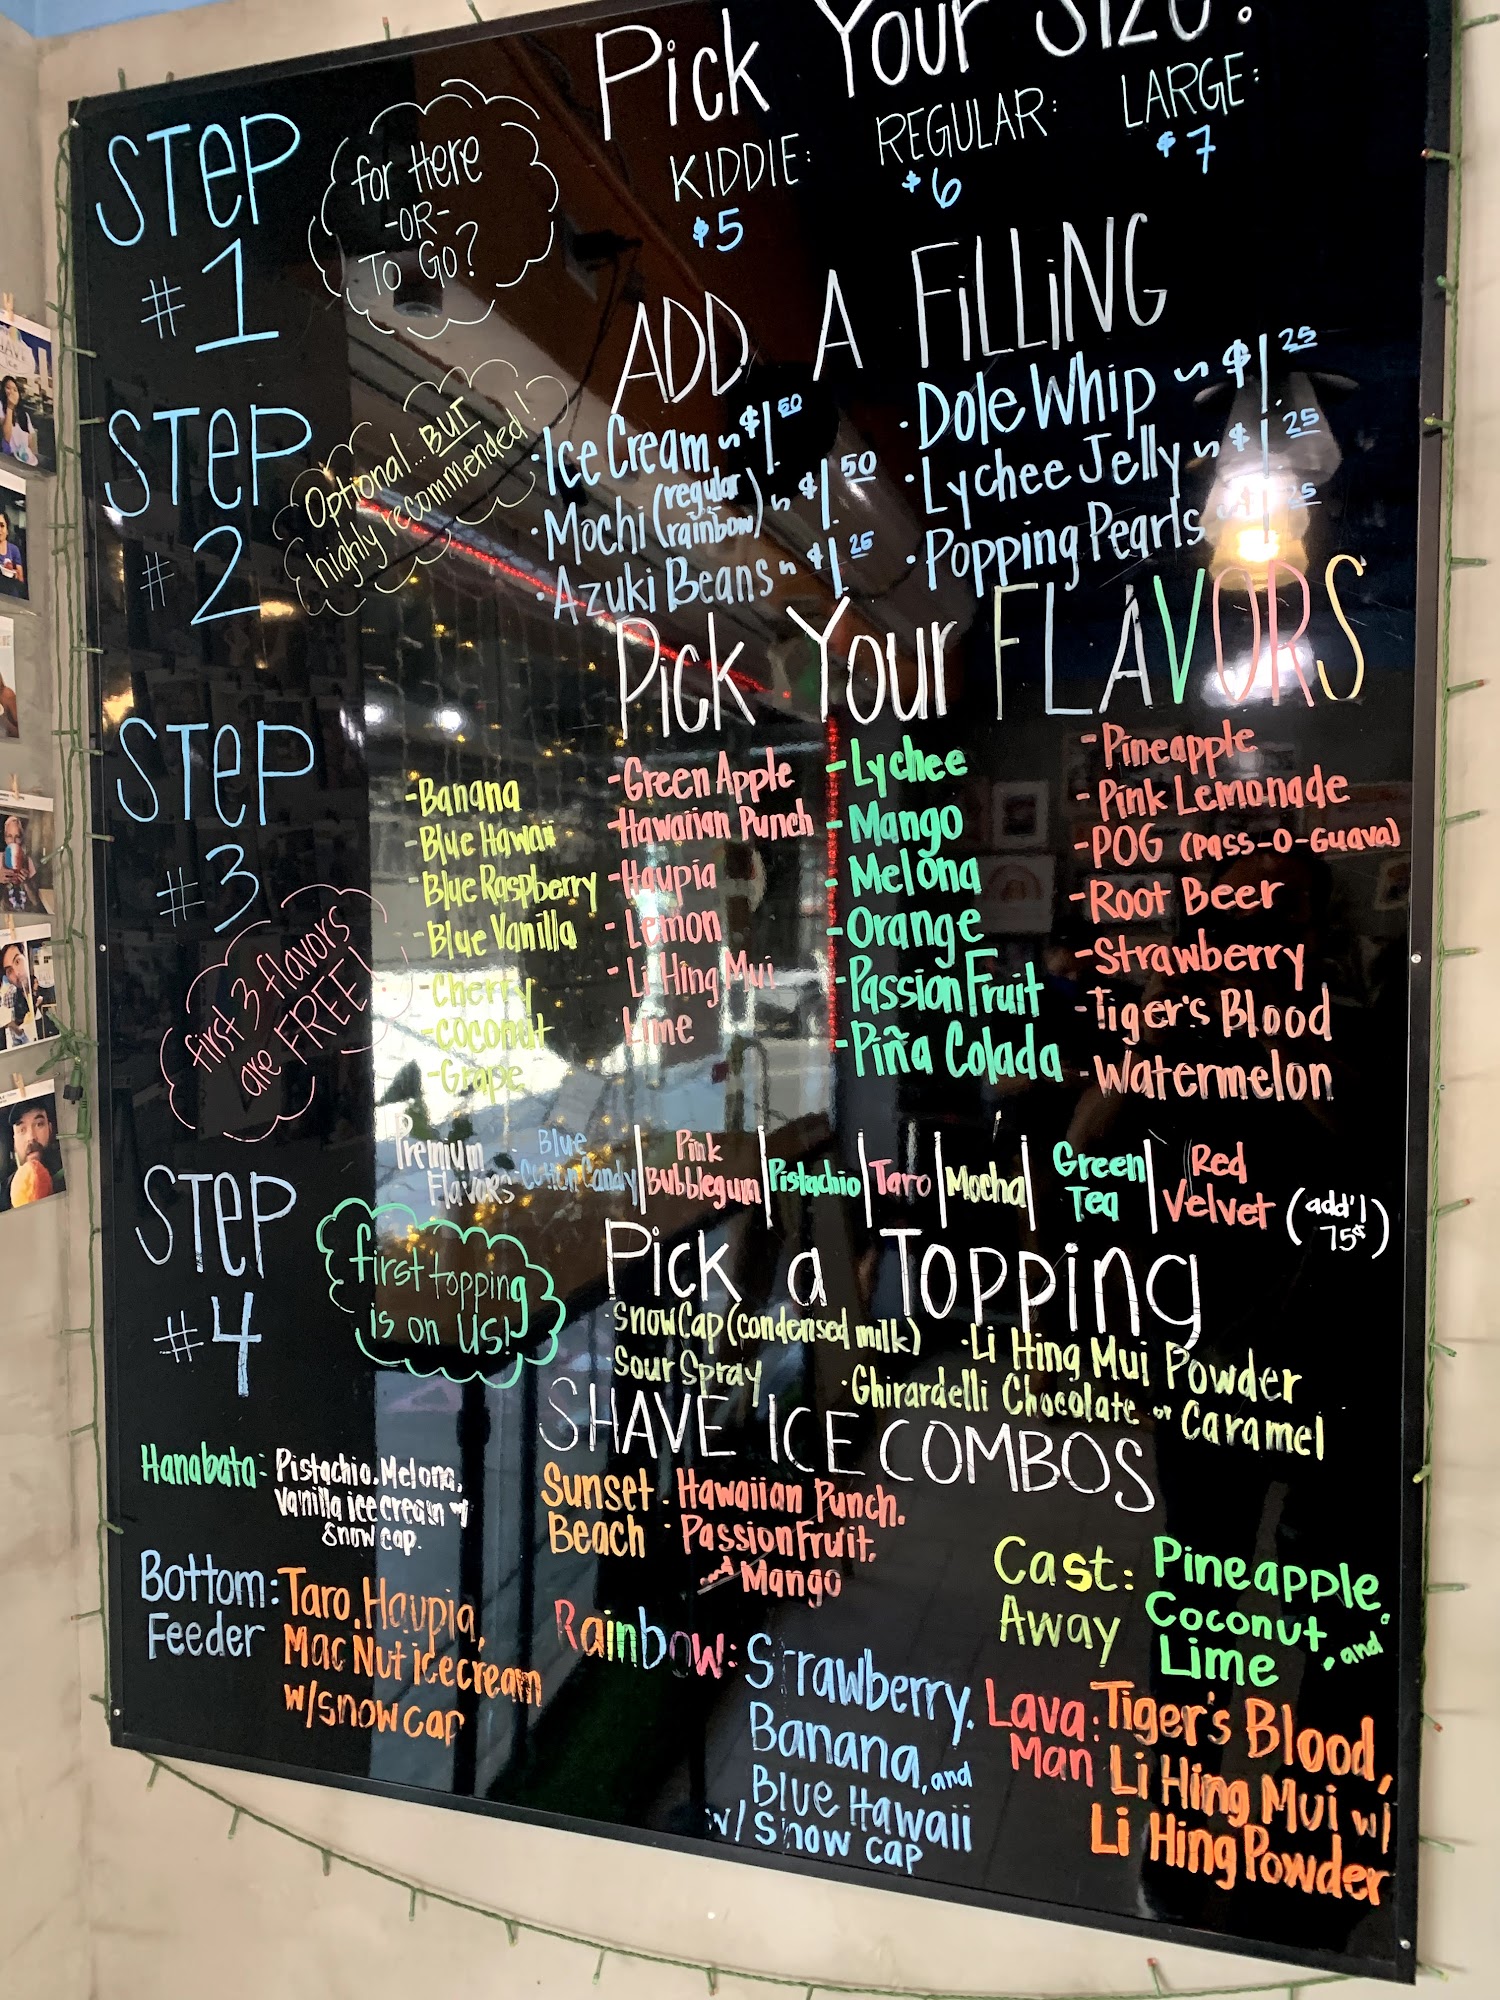 STEP
#1
for Here
-OR-
To Go?
Pick Your Size:
KIDDIE:
$5
REGULAR:
$6
LARGE:
$7
STEP
#2
Optional...BUT
highly recommended!
ADD A FiLLiNG
·Ice Cream ~ $1.50
·Mochi (regular
rainbow) ~ $1.50
·Azuki Beans ~ $1.25
·Dole Whip ~ $1.25
·Lychee Jelly ~ $1.25
·Popping Pearls
STEP
#3
first 3 flavors
are FREE!
Pick Your FLAVORS
-Banana
-Blue Hawaii
-Blue Raspberry
-Blue Vanilla
-Cherry
-Coconut
-Grape
-Green Apple
-Hawaiian Punch
-Haupia
-Lemon
-Li Hing Mui
-Lime
-Lychee
-Mango
-Melona
-Orange
-Passion Fruit
-Piña Colada
-Pineapple
-Pink Lemonade
-POG (Pass-O-Guava)
-Root Beer
-Strawberry
-Tiger's Blood
-Watermelon
Premium
Flavors
Blue
Cotton Candy
Pink
Bubblegum
Pistachio
Taro
Mocha
Green
Tea
Red
Velvet
(add'l
75¢)
STEP
#4
first topping
is on US!
Pick a Topping
·Snow Cap (condensed milk)
·Sour Spray
·Li Hing Mui Powder
·Ghirardelli Chocolate or Caramel
SHAVE ICE COMBOS
Hanabata: Pistachio, Melona,
Vanilla ice cream w/
snow cap.
Bottom: Taro, Haupia,
Feeder Mac Nut ice cream
w/snow cap
Sunset : Hawaiian Punch,
Beach Passion Fruit,
and Mango
Rainbow: Strawberry,
Banana, and
Blue Hawaii
w/ Snow cap
Cast : Pineapple,
Away Coconut, and
Lime
Lava : Tiger's Blood,
Man Li Hing Mui w/
Li Hing Powder